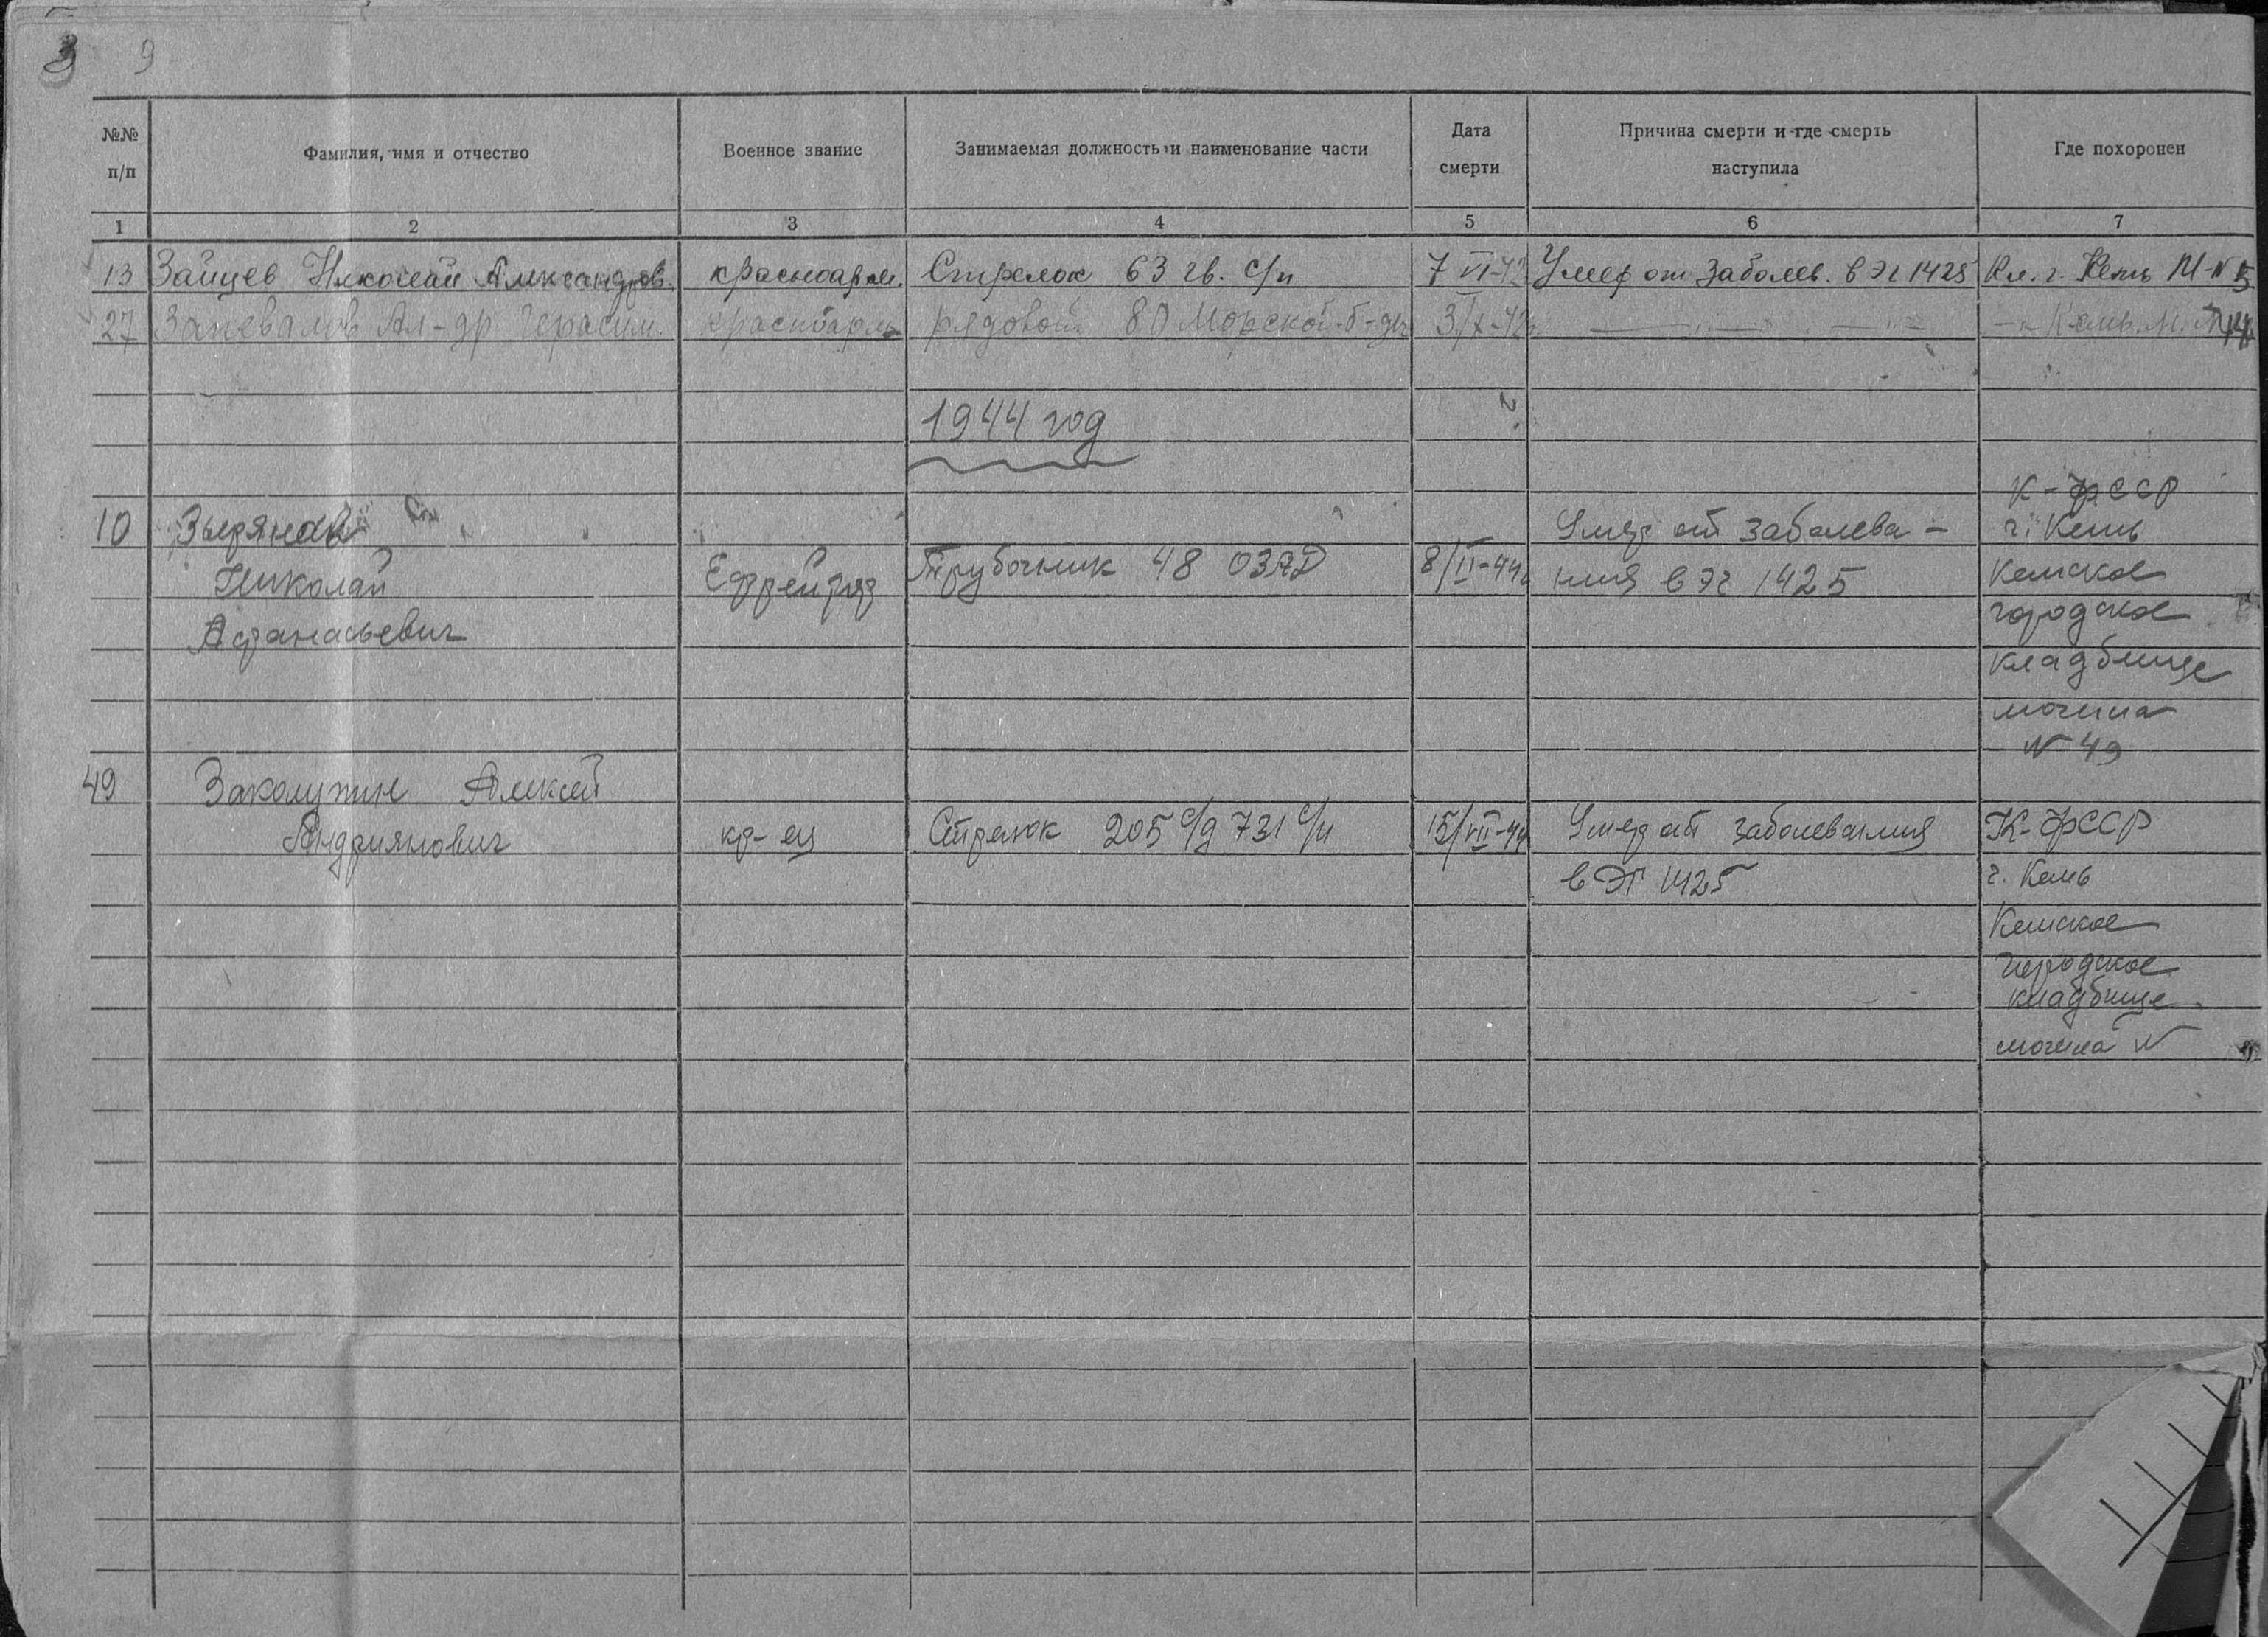 З 9
№№ п/п
Фамилия, имя и отчество
Военное звание
Занимаемая должность и наименование части
Дата смерти
Причина смерти и где смерть наступила
Где похоронен
1 2 3 4 5 6 7
13 Зайцев Николай Александров. красноарм. Стрелок 63 гв. с/п 7 VI-42 Умер от заболев. в эг 1425 Кл. г. Кемь М-N 5
27 Закевалов Ал-др Герасим. красноарм рядовой 80 Морской б-ды 3/X-42 —"— —"— —"— Кемь. М. N 14
1944 год
К-ФССР
10 Зырянов Умер от заболева- г. Кемь
Николай Ефрейтор Трубочник 48 ОЗАД 8/II-44г ния в эг 1425 Кемское
Афанасьевич городское
кладбище
могила
N 49
49 Заколупин Алексей
Андриянович кр-ец Стрелок 205 с/д 731 с/п 15/VII-44 Умер от заболевания К-ФССР
в ЭГ 1425 г. Кемь
Кемское
городское
кладбище
могила N